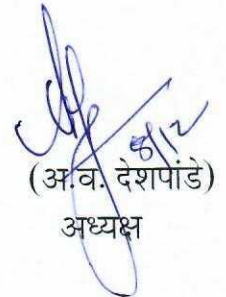 8/12
(अ.व. देशपांडे)
अध्यक्ष